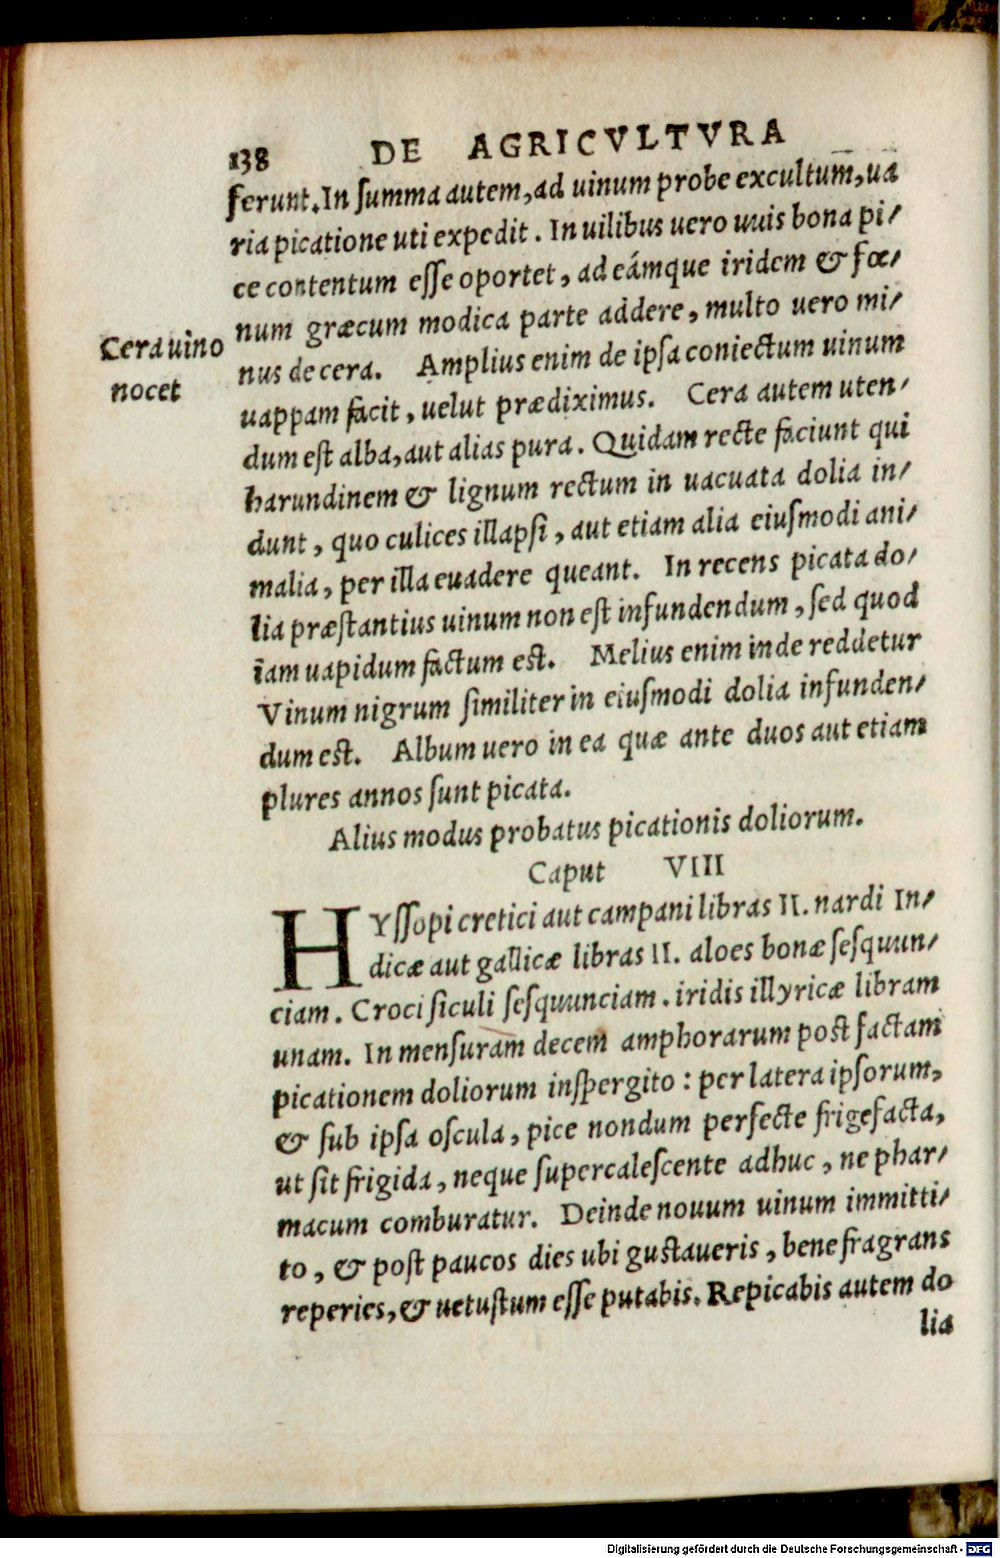 138 DE AGRICVLTVRA
ferunt. In ſumma autem, ad uinum probe excultum, ua
ria picatione uti expedit. In uilibus uero uuis bona pi/
ce contentum eſſe oportet, ad eámque iridem & fœ/
num græcum modica parte addere, multo uero mi/
Cera uino
nocet
nus de cera. Amplius enim de ipſa coniectum uinum
uappam facit, uelut prædiximus. Cera autem uten/
dum eſt alba, aut alias pura. Quidam recte faciunt qui
harundinem & lignum rectum in uacuata dolia in/
dunt, quo culices illapſi, aut etiam alia eiuſmodi ani/
malia, per illa euadere queant. In recens picata do/
lia præſtantius uinum non eſt infundendum, ſed quod
iam uapidum factum eſt. Melius enim inde reddetur
Vinum nigrum ſimiliter in eiuſmodi dolia infunden/
dum eſt. Album uero in ea quæ ante duos aut etiam
plures annos ſunt picata.
Alius modus probatus picationis doliorum.
Caput VIII
HYſſopi cretici aut campani libras II. nardi In/
dicæ aut gallicæ libras II. aloes bonæ ſeſquun/
ciam. Croci ſiculi ſeſquunciam. iridis illyricæ libram
unam. In menſuram decem amphorarum poſt factam
picationem doliorum inſpergito: per latera ipſorum,
& ſub ipſa oſcula, pice nondum perfecte frigefacta,
ut ſit frigida, neque ſupercaleſcente adhuc, ne phar/
macum comburatur. Deinde nouum uinum immitti/
to, & poſt paucos dies ubi guſtaueris, bene fragrans
reperies, & uetuſtum eſſe putabis. Repicabis autem do
lia
Digitalisierung gefördert durch die Deutsche Forschungsgemeinschaft - DFG